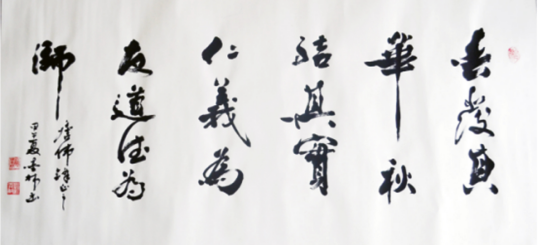 春發其
華秋
結其實
仁義為
友道德為
師